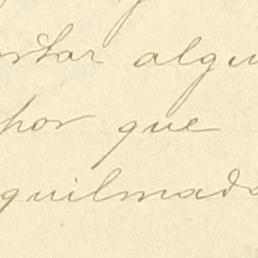 ortar algu
por que
quilmada